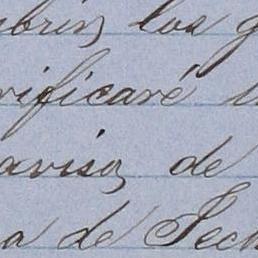 brir, los g
rificaré
aviso, de
a de Fech